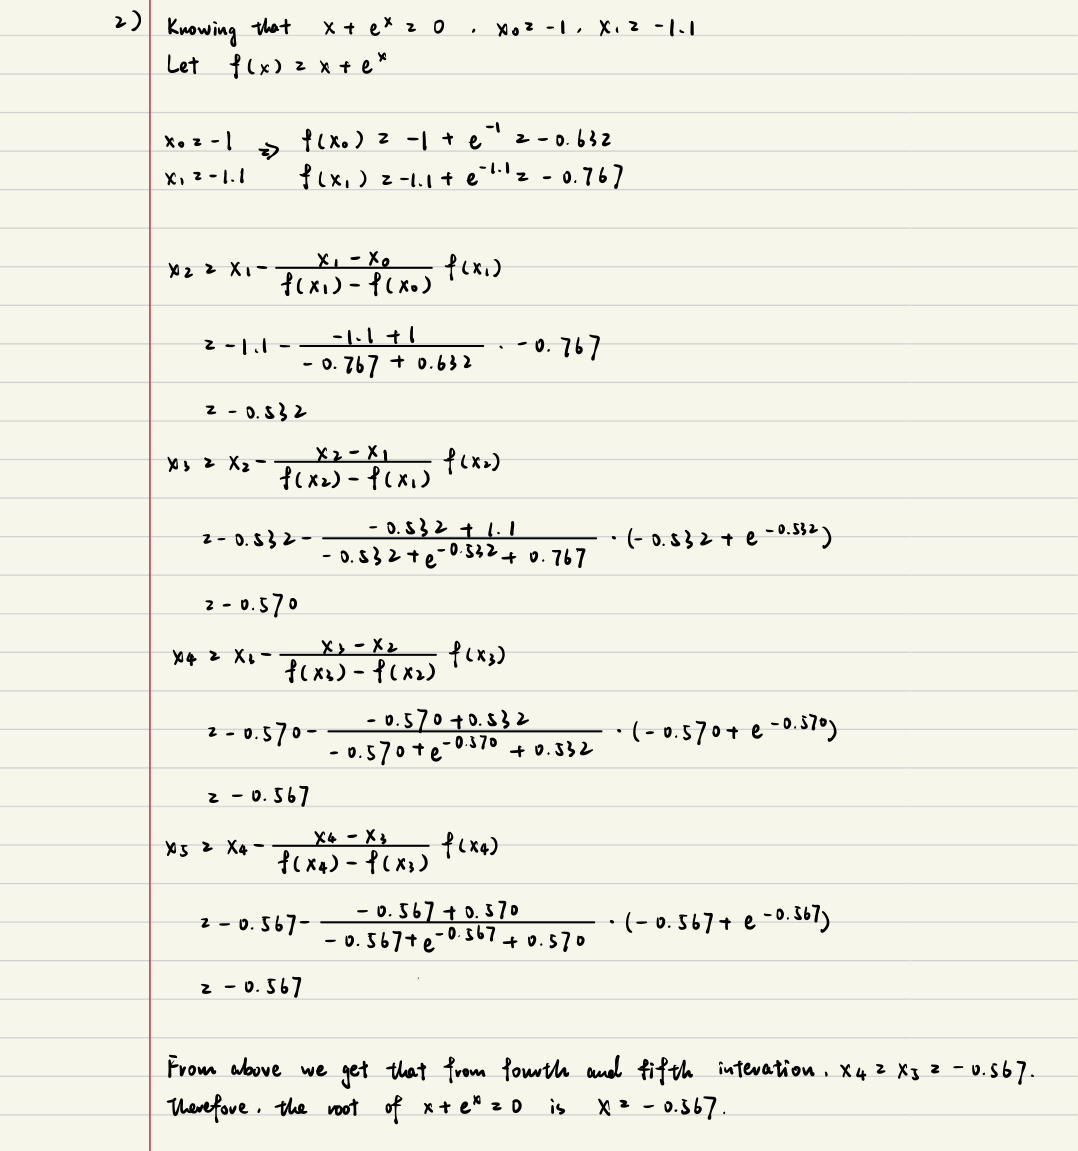 2) Knowing that x + e^x = 0 . x₀ = -1 . x₁ = -1.1
Let f(x) = x + e^x
x₀ = -1 ⇒ f(x₀) = -1 + e^-1 = -0.632
x₁ = -1.1 f(x₁) = -1.1 + e^-1.1 = -0.767
x₂ = x₁ - (x₁ - x₀)/(f(x₁) - f(x₀)) f(x₁)
= -1.1 - (-1.1 + 1)/(-0.767 + 0.632) · -0.767
= -0.532
x₃ = x₂ - (x₂ - x₁)/(f(x₂) - f(x₁)) f(x₂)
= -0.532 - (-0.532 + 1.1)/(-0.532 + e^-0.532 + 0.767) · (-0.532 + e^-0.532)
= -0.570
x₄ = x₃ - (x₃ - x₂)/(f(x₃) - f(x₂)) f(x₃)
= -0.570 - (-0.570 + 0.532)/(-0.570 + e^-0.570 + 0.532) · (-0.570 + e^-0.570)
= -0.567
x₅ = x₄ - (x₄ - x₃)/(f(x₄) - f(x₃)) f(x₄)
= -0.567 - (-0.567 + 0.570)/(-0.567 + e^-0.567 + 0.570) · (-0.567 + e^-0.567)
= -0.567
From above we get that from fourth and fifth interation, x₄ = x₅ = -0.567.
Therefore, the root of x + e^x = 0 is x = -0.567.